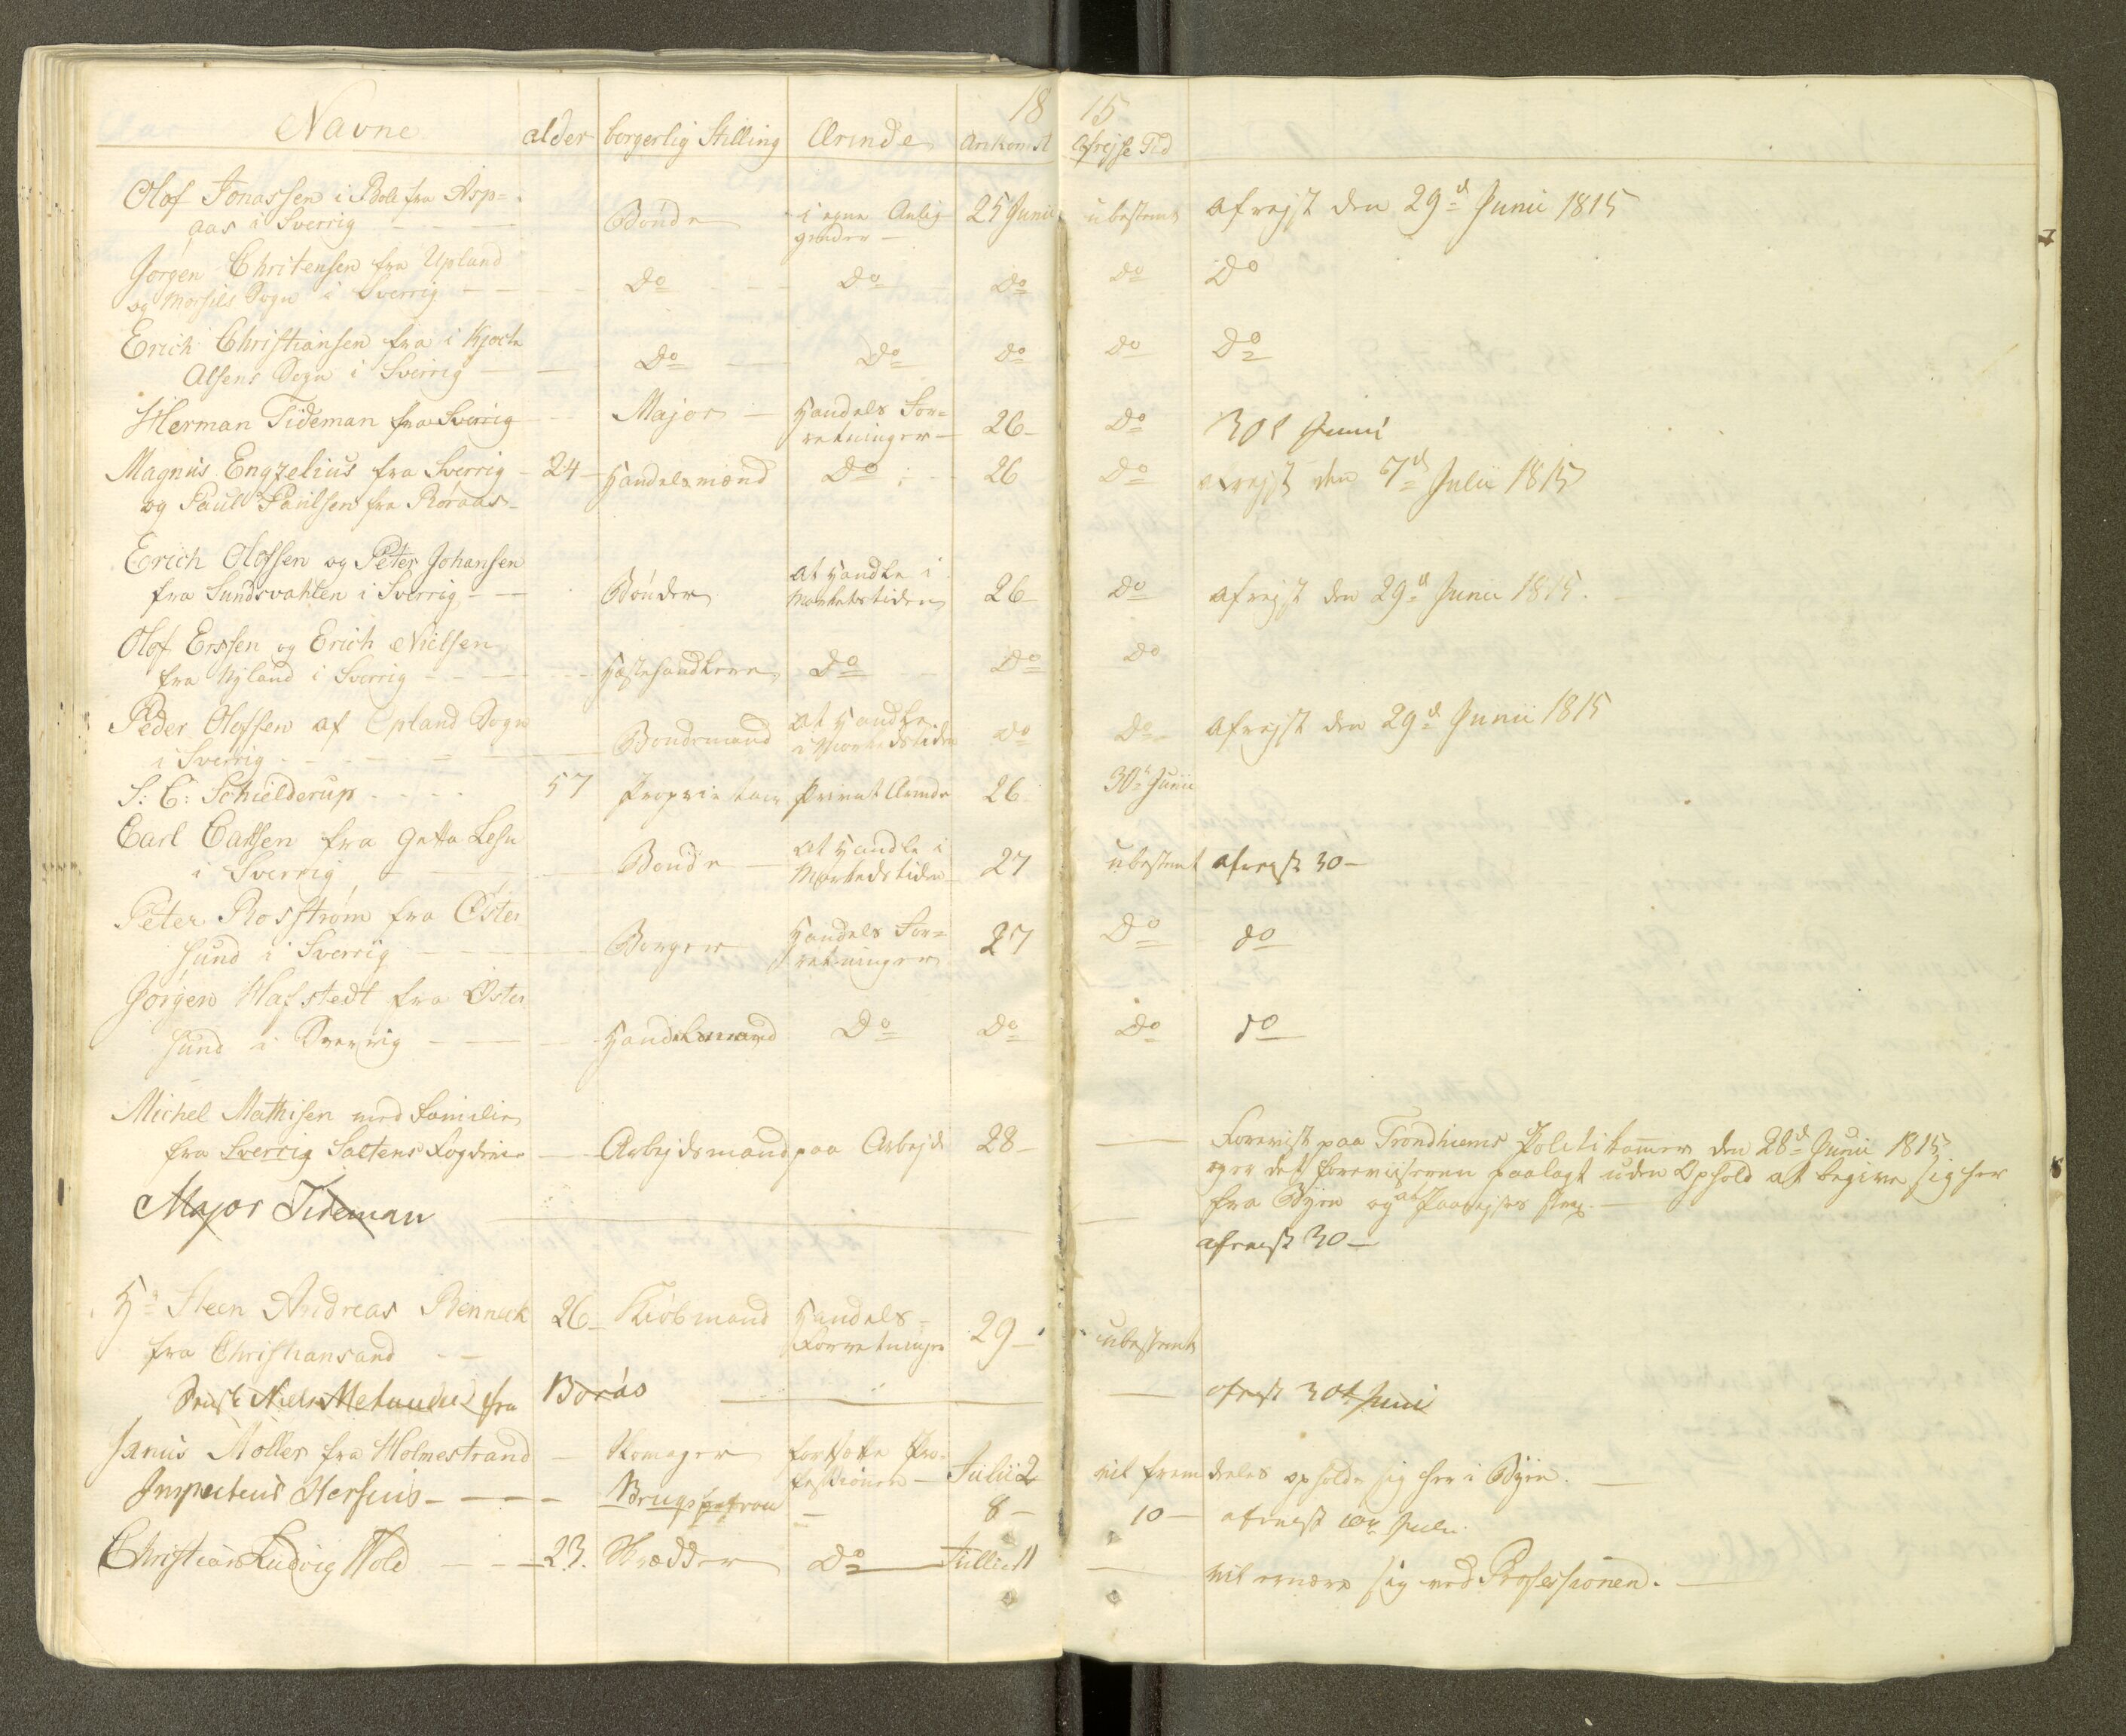 1815
Navne alder borgerlig Stilling Ærinde Ankomst Afrejse Tid
Olof Jonassen i Bole fra Asp=
aas i Sverrig - - - Bonde i egne Anlig
gender - 25 Junii ubestemt afrejst den 29d Junii 1815
Jørgen Christensen fra Upland
og Morsils Sogn i Sverrig - - Do Do Do Do Do
Erich Christiansen fra i
Alsens Sogn i Sverrig - - Do Do Do Do Do
Herman Tideman fra Sverrig - Major - Handels For=
retninger - 26 - Do 30t Junii
Magnus Engzelius fra Sverrig - 24 - Handelsmænd Do 26 Do afrejst den 7d Julii 1815
og Paul Paulsen fra Røraas -
Erich Olofsen og Peter Johansen
fra Sundsvahlen i Sverrig - - Bønder at Handle i
Markedstiden 26 - Do afrejst den 29d Junii 1815.
Olof Erssen og Erich Nielsen
fra Nyland i Sverrig - - - Hæstehandlere Do Do Do
Peder Olofsen af Opland Sogn
i Sverrig - - - Bondemand at Handle
i Markedstiden Do Do afrejst den 29d Junii 1815
S: C: Schielderup - - - 57 Proprietair Privat Ærinde 26 30t Junii
Carl Carlsen fra
i Sverrig - - - Bonde at Handle i
Markedstiden 27 ubestemt afrejst 30 -
Peter Rosstrøm fra Øster
sund i Sverrig - - - Borger Handels For=
retninger 27 Do do
Jørgen Hafstedt fra Øster
sund i Sverrig - - - Handelsmand Do Do Do do
Michel Mathisen med Familie
fra Sverrig Saltens Fogderie - Arbejdsmand paa Arbejde 28 - Forevist paa Trondhiems Politikammer den 28d Junii 1815
og er det foreviseren paalagt uden Ophold at begive sig her
fra Byen og at
Major Tideman - afrejst 30 -
Hr Steen Andreas Renneck 26 - Kiøbmand Handels-
fra Christiansand - - Forretninger 29 - ubestemt
Niels fra Borås - afrejst 30t Junii
Janus Møller fra Holmestrand - Skomager forsætte Pro-
fessionen - Julii 2 vil fremdeeles opholde sig her i Byen. -
- - - Brugspatron - 8 - 10 - afrejst 10n Julii
Christian Ludvig Hold - - - 23. Skrædder Do Julli 11 - vil ernære sig ved Professionen. -